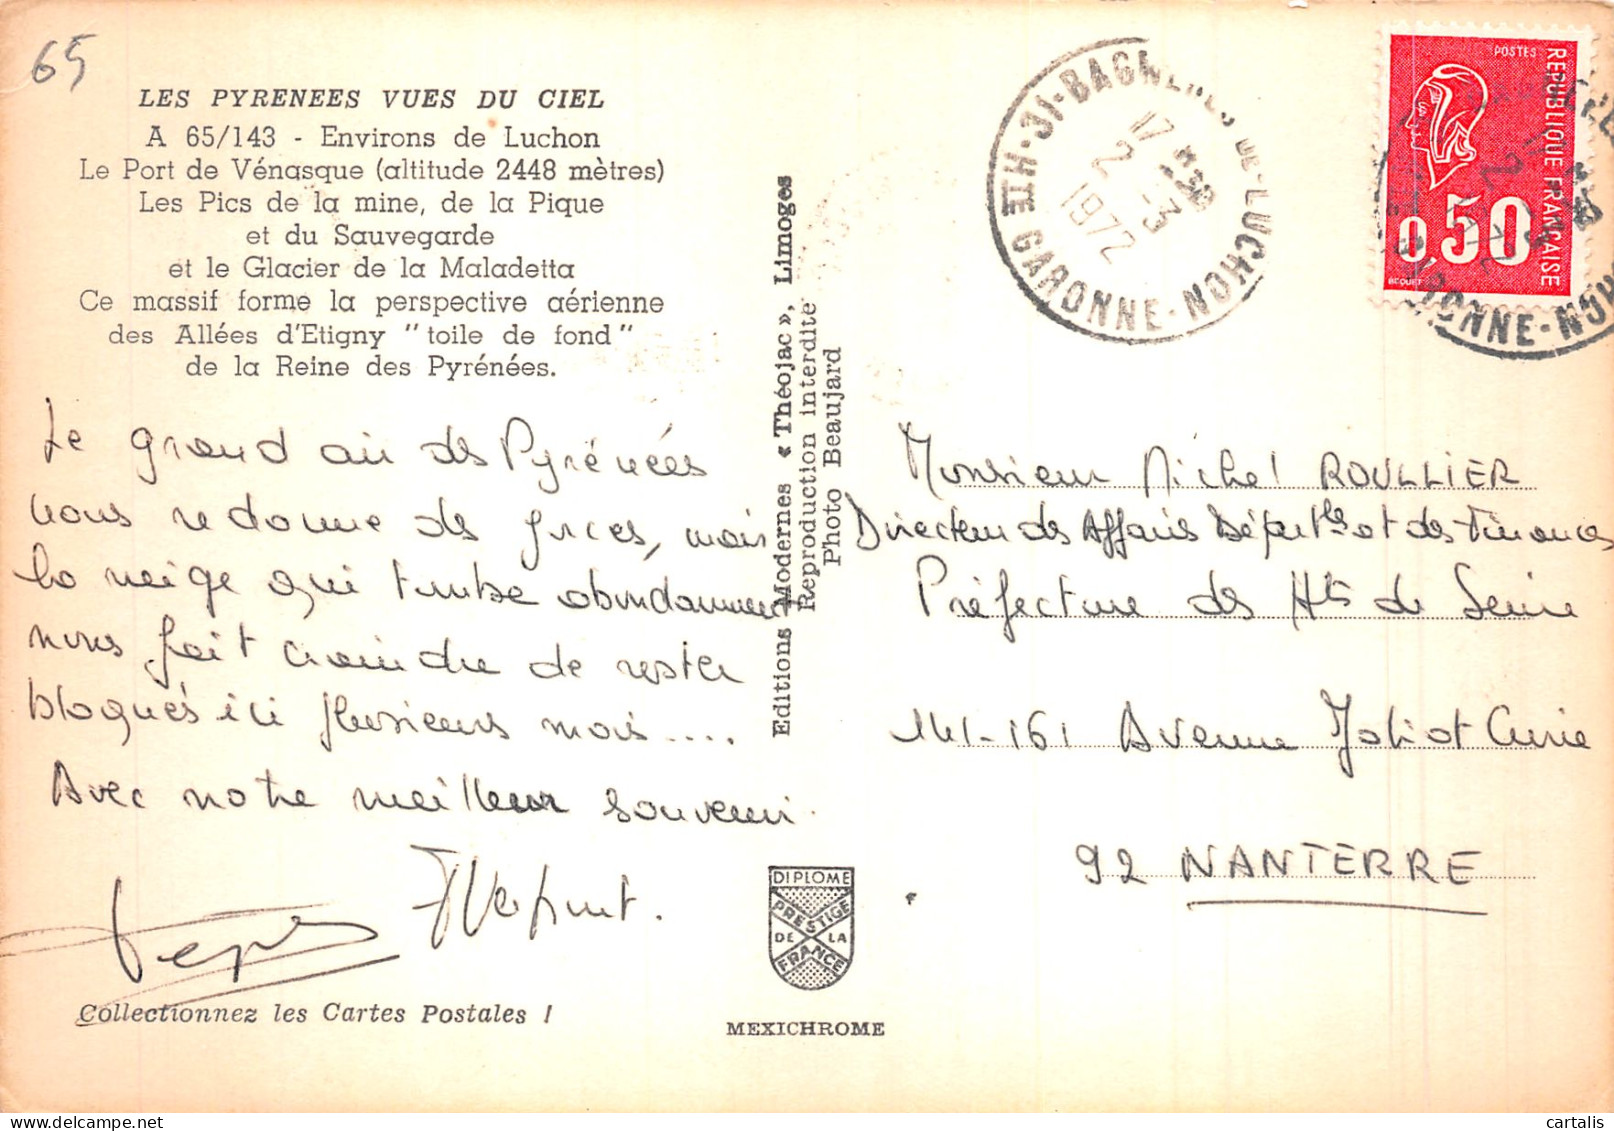 65
LES PYRENEES VUES DU CIEL
A 65/143 - Environs de Luchon
Le Port de Vénasque (altitude 2448 mètres)
Les Pics de la mine, de la Pique
et du Sauvegarde
et le Glacier de la Maladetta
Ce massif forme la perspective aérienne
des Allées d'Etigny "toile de fond"
de la Reine des Pyrénées.
Le grand air des Pyrénées
nous redonne des forces, mais
la neige qui tombe abondamment
nous fait craindre de rester
bloqués ici plusieurs mois....
Avec notre meilleur souvenir.
Collectionnez les Cartes Postales !
Editions Modernes « Théojac », Limoges
Reproduction interdite
Photo Beaujard
DIPLOME
PRESTIGE
DE LA
FRANCE
MEXICHROME
31-BAGNERES-DE-LUCHON-HTE GARONNE
17 H30
2-3
1972
POSTES
REPUBLIQUE FRANCAISE
0,50
BEQUET
Monsieur Michel ROULLIER
Directeur des Affaires Départles et des Finances
Préfecture des Hts de Seine
141-161 Avenue Joliot Curie
92 NANTERRE
cartalis